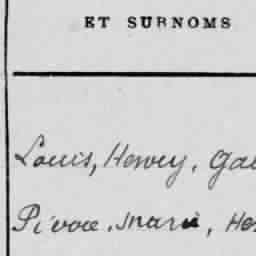 ET SURNOMS
Louis, Hervey, Gab
Pivoce, Marie, Hen